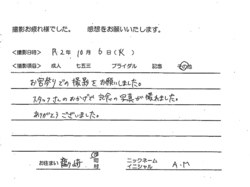 撮影お疲れ様でした。 感想をお願いいたします。
<撮影日時> R2年 10月 6日(火)
<撮影項目> 成人 七五三 ブライダル 記念 その他
お宮参りでの撮影をお願いしました。
スタッフさんのおかげで 写真が撮れました。
ありがとうございました。
お住まい 崎 町 村 ニックネーム イニシャル A.M